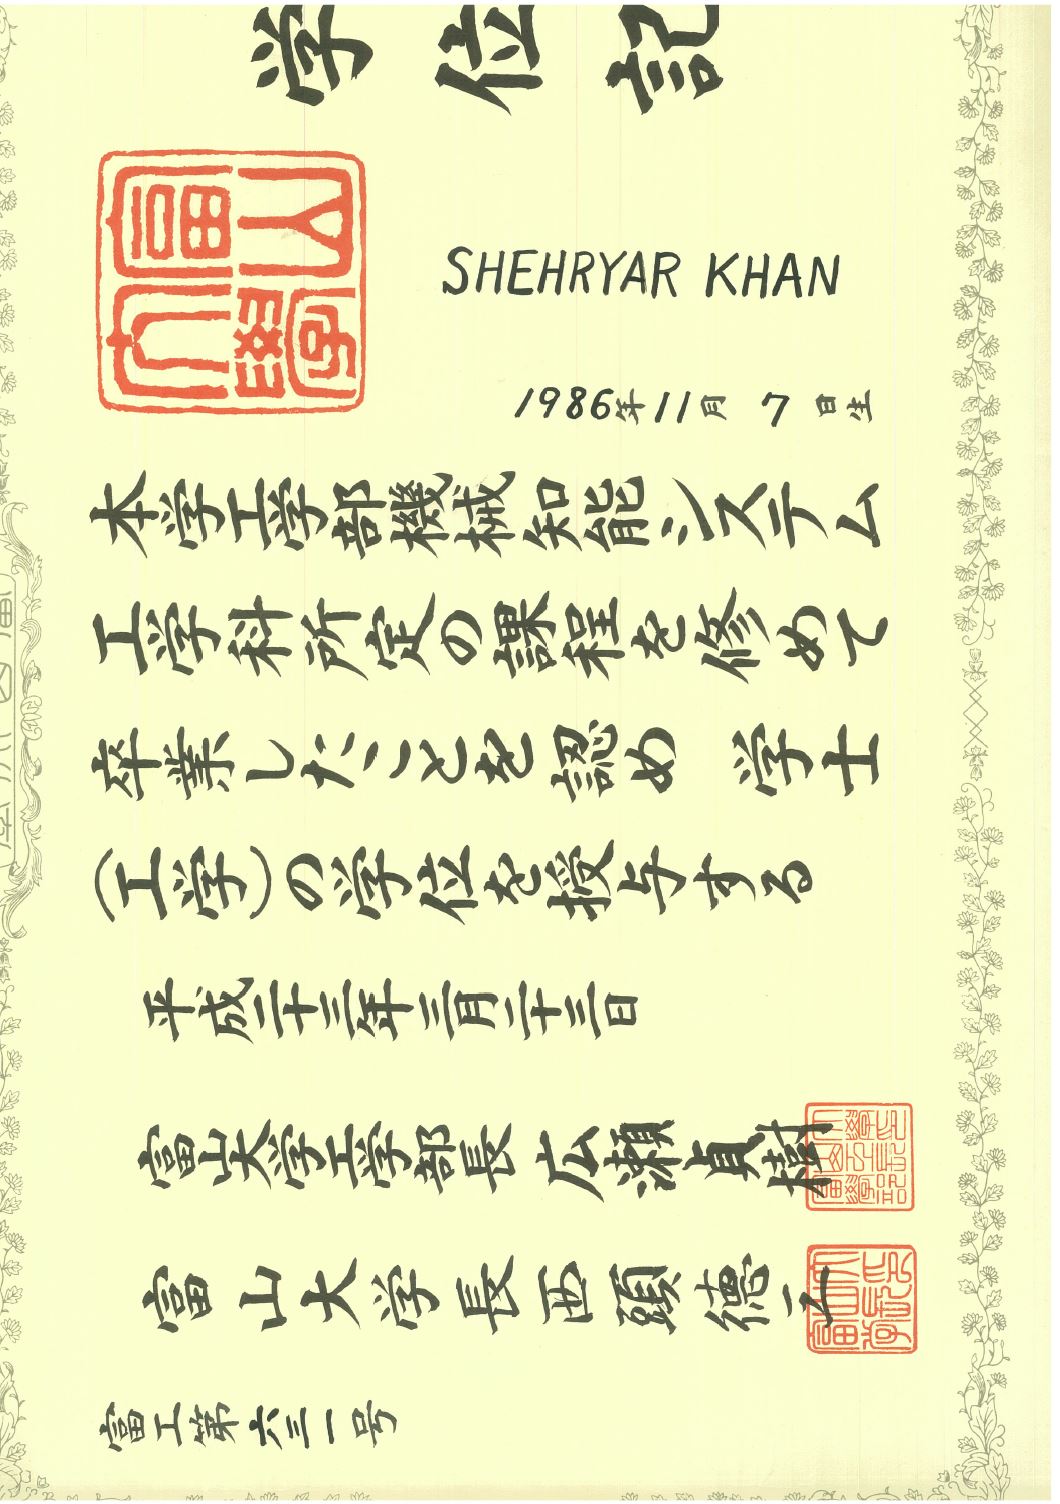 学位記
SHEHRYAR KHAN
1986年11月7日生
本学工学部機械知能システム
工学科所定の課程を修めて
卒業したことを認め 学士
(工学)の学位を授与する
平成二十三年三月二十三日
富山大学工学部長 広瀬貞樹
富山大学長 西頭德三
富工第六三一号